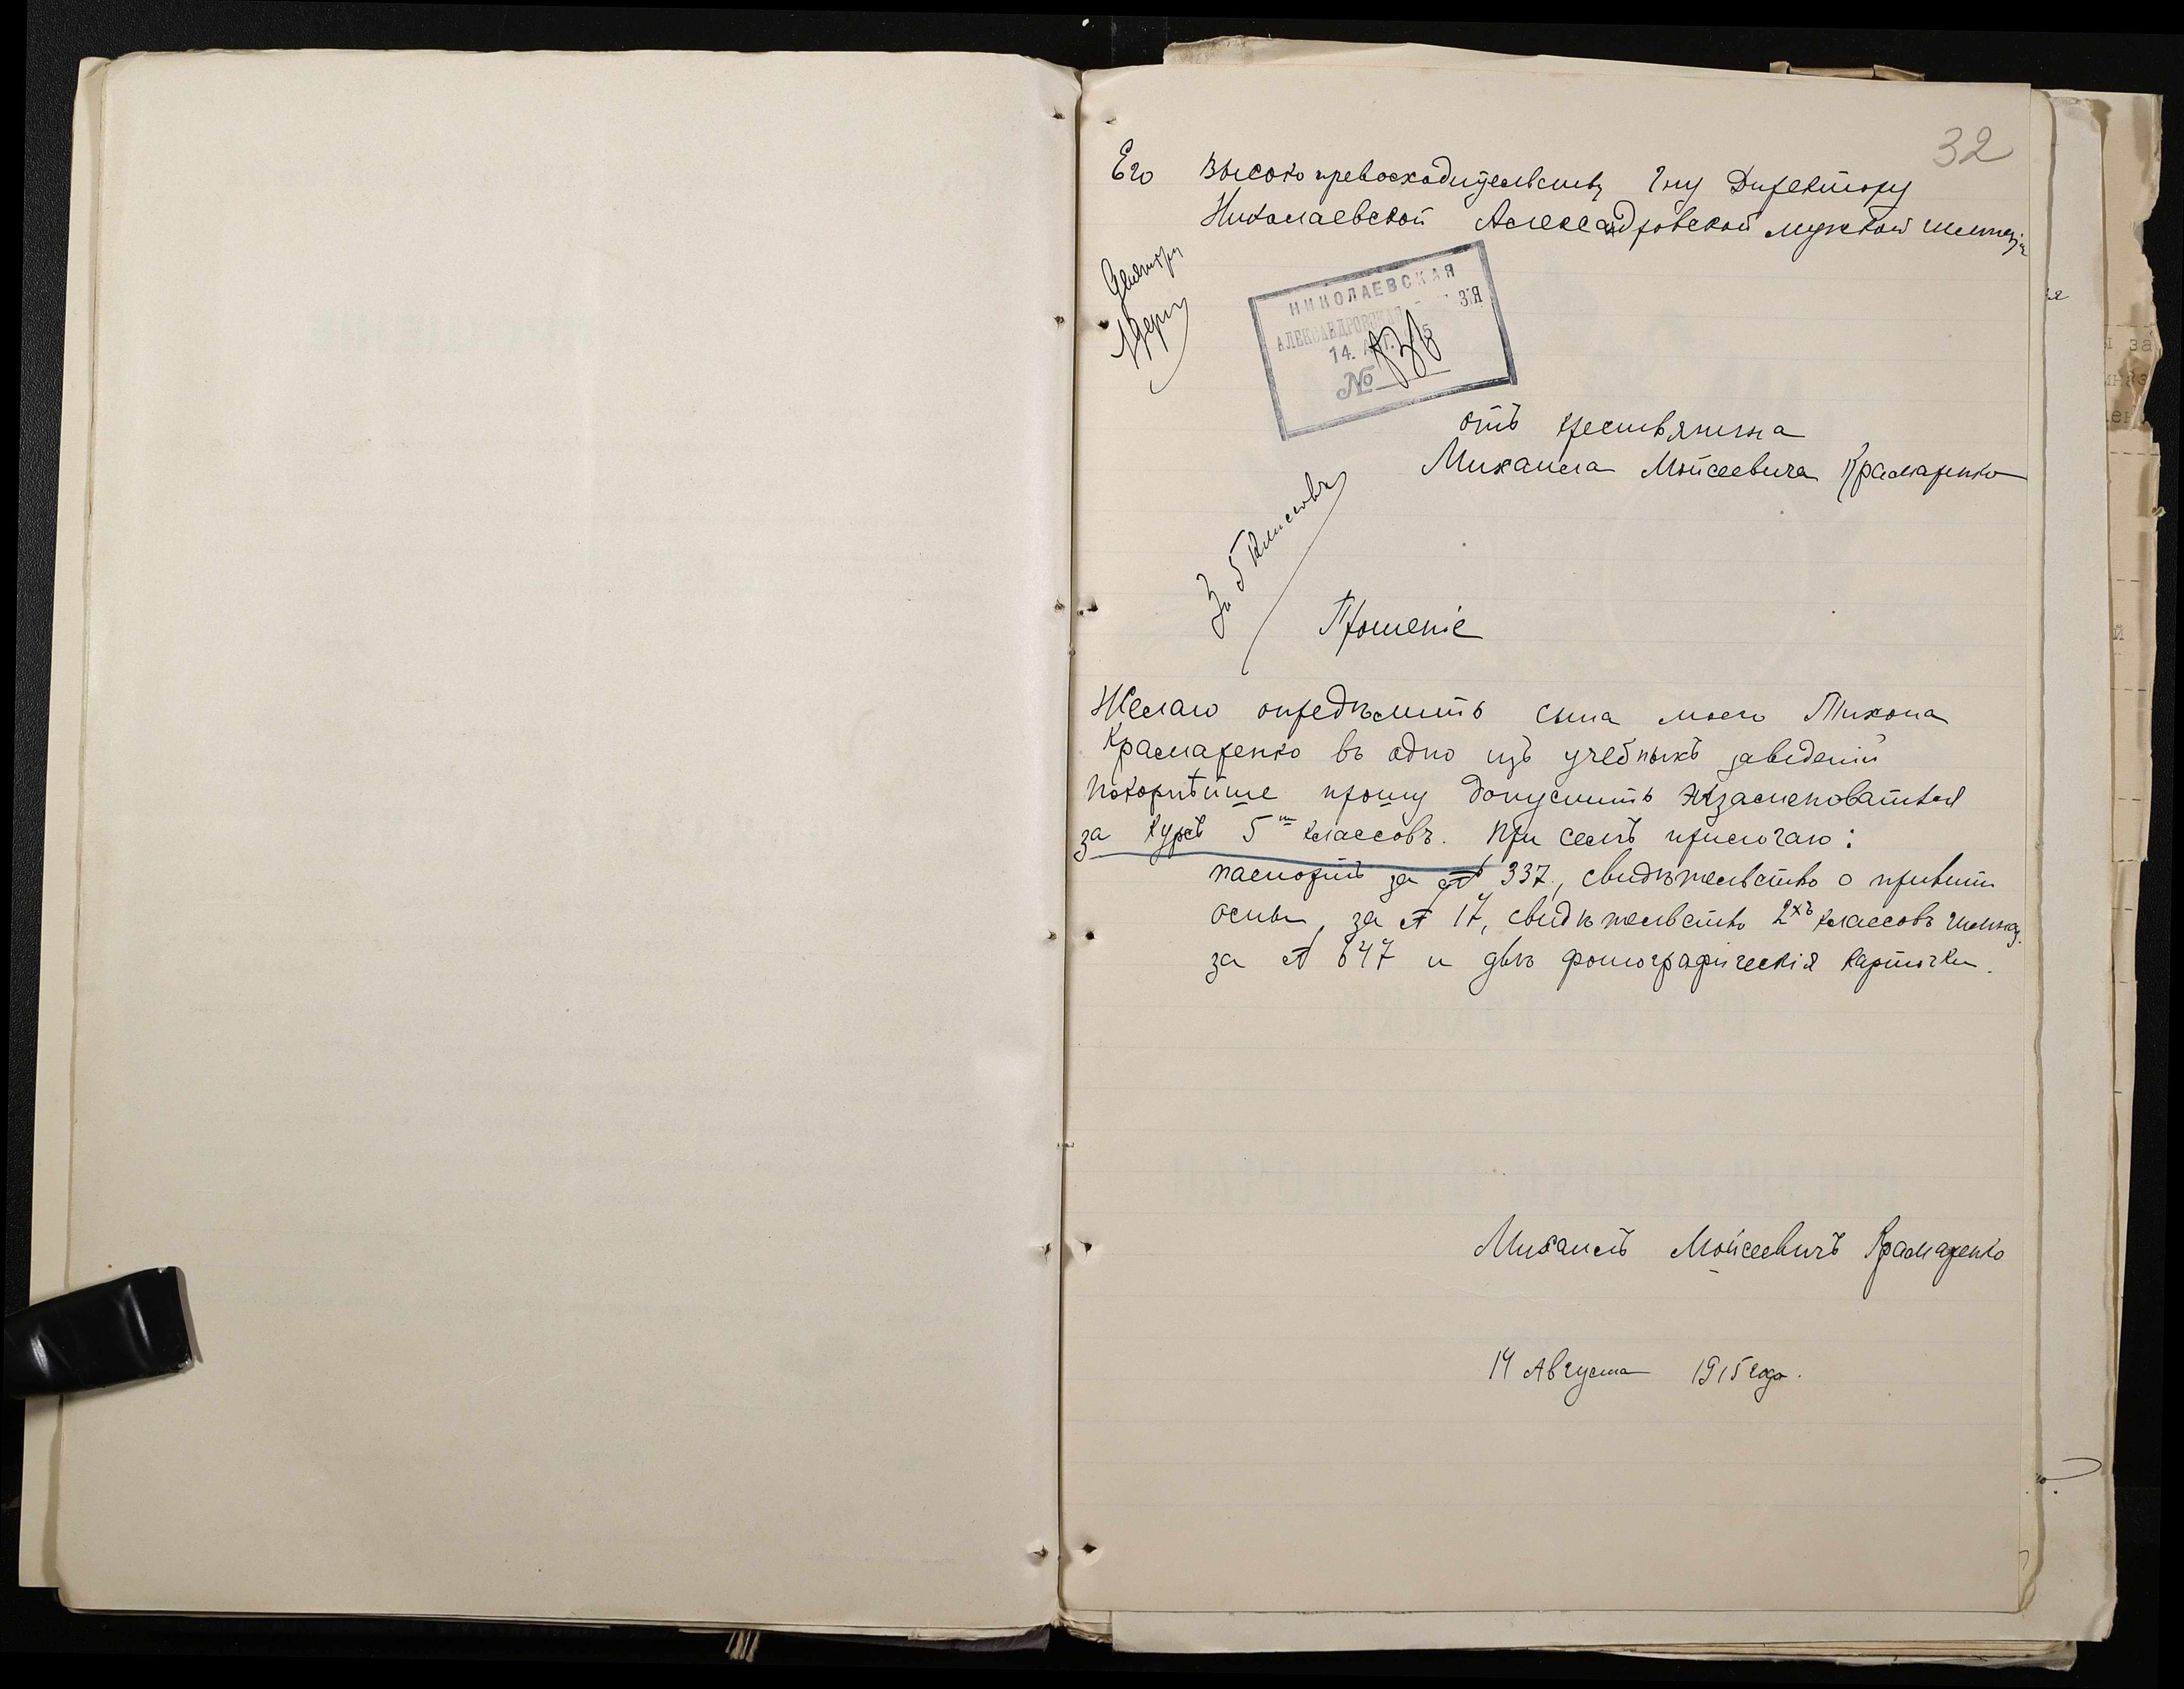 32
Его Высокопревосходительству Гну Директору
Николаевской Александровской мужской гимназіи
НИКОЛАЕВСКАЯ
АЛЕКСАНДРОВСКАЯ ЗІЯ
14. АВГ. 1915
№
отъ крестьянина
Михаила Мойсеевича Крамаренко
За 5 классовъ
Прошеніе
Желаю опредѣлить сына моего Тихона
Крамаренко въ одно изъ учебныхъ заведеній
покорнѣйше прошу допустить экзаменоваться
за курсъ 5ти классовъ. При семъ прилогаю:
паспортъ за № 337, свидѣтельство о привити
оспы, за № 17, свидѣтельство 2хъ классовъ гимназ.
за № 647 и двѣ фотографическія карточки.
Михаилъ Мойсеевичъ Крамаренко
14 Августа 1915 года.